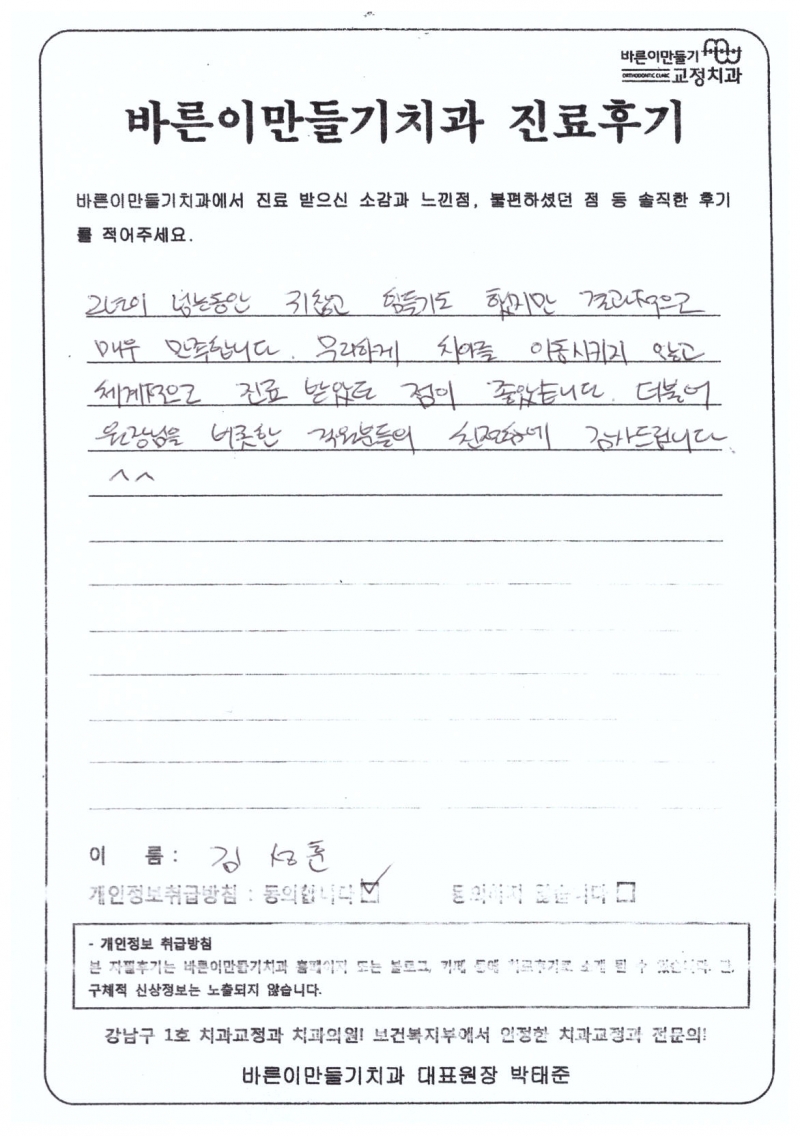 바른이만들기
ORTHODONTIC CLINIC 교정치과
바른이만들기치과 진료후기
바른이만들기치과에서 진료 받으신 소감과 느낀점, 불편하셨던 점 등 솔직한 후기
를 적어주세요.
2년이 넘는동안 귀찮고 힘들기도 했지만 결과적으로
매우 만족합니다. 무리하게 치아를 이동시키지 않고
체계적으로 진료 받았던 점이 좋았습니다. 더불어
원장님을 비롯한 직원분들의 친절함에 감사드립니다
^^
이 름 : 김 성훈
개인정보취급방침 : 동의합니다 동의하지 않습니다
- 개인정보 취급방침
본 자필후기는 바른이만들기치과 홈페이지 또는 블로그, 카페 등에 치료후기로 소개 될 수 있습니다. 단,
구체적 신상정보는 노출되지 않습니다.
강남구 1호 치과교정과 치과의원! 보건복지부에서 인정한 치과교정과 전문의!
바른이만들기치과 대표원장 박태준